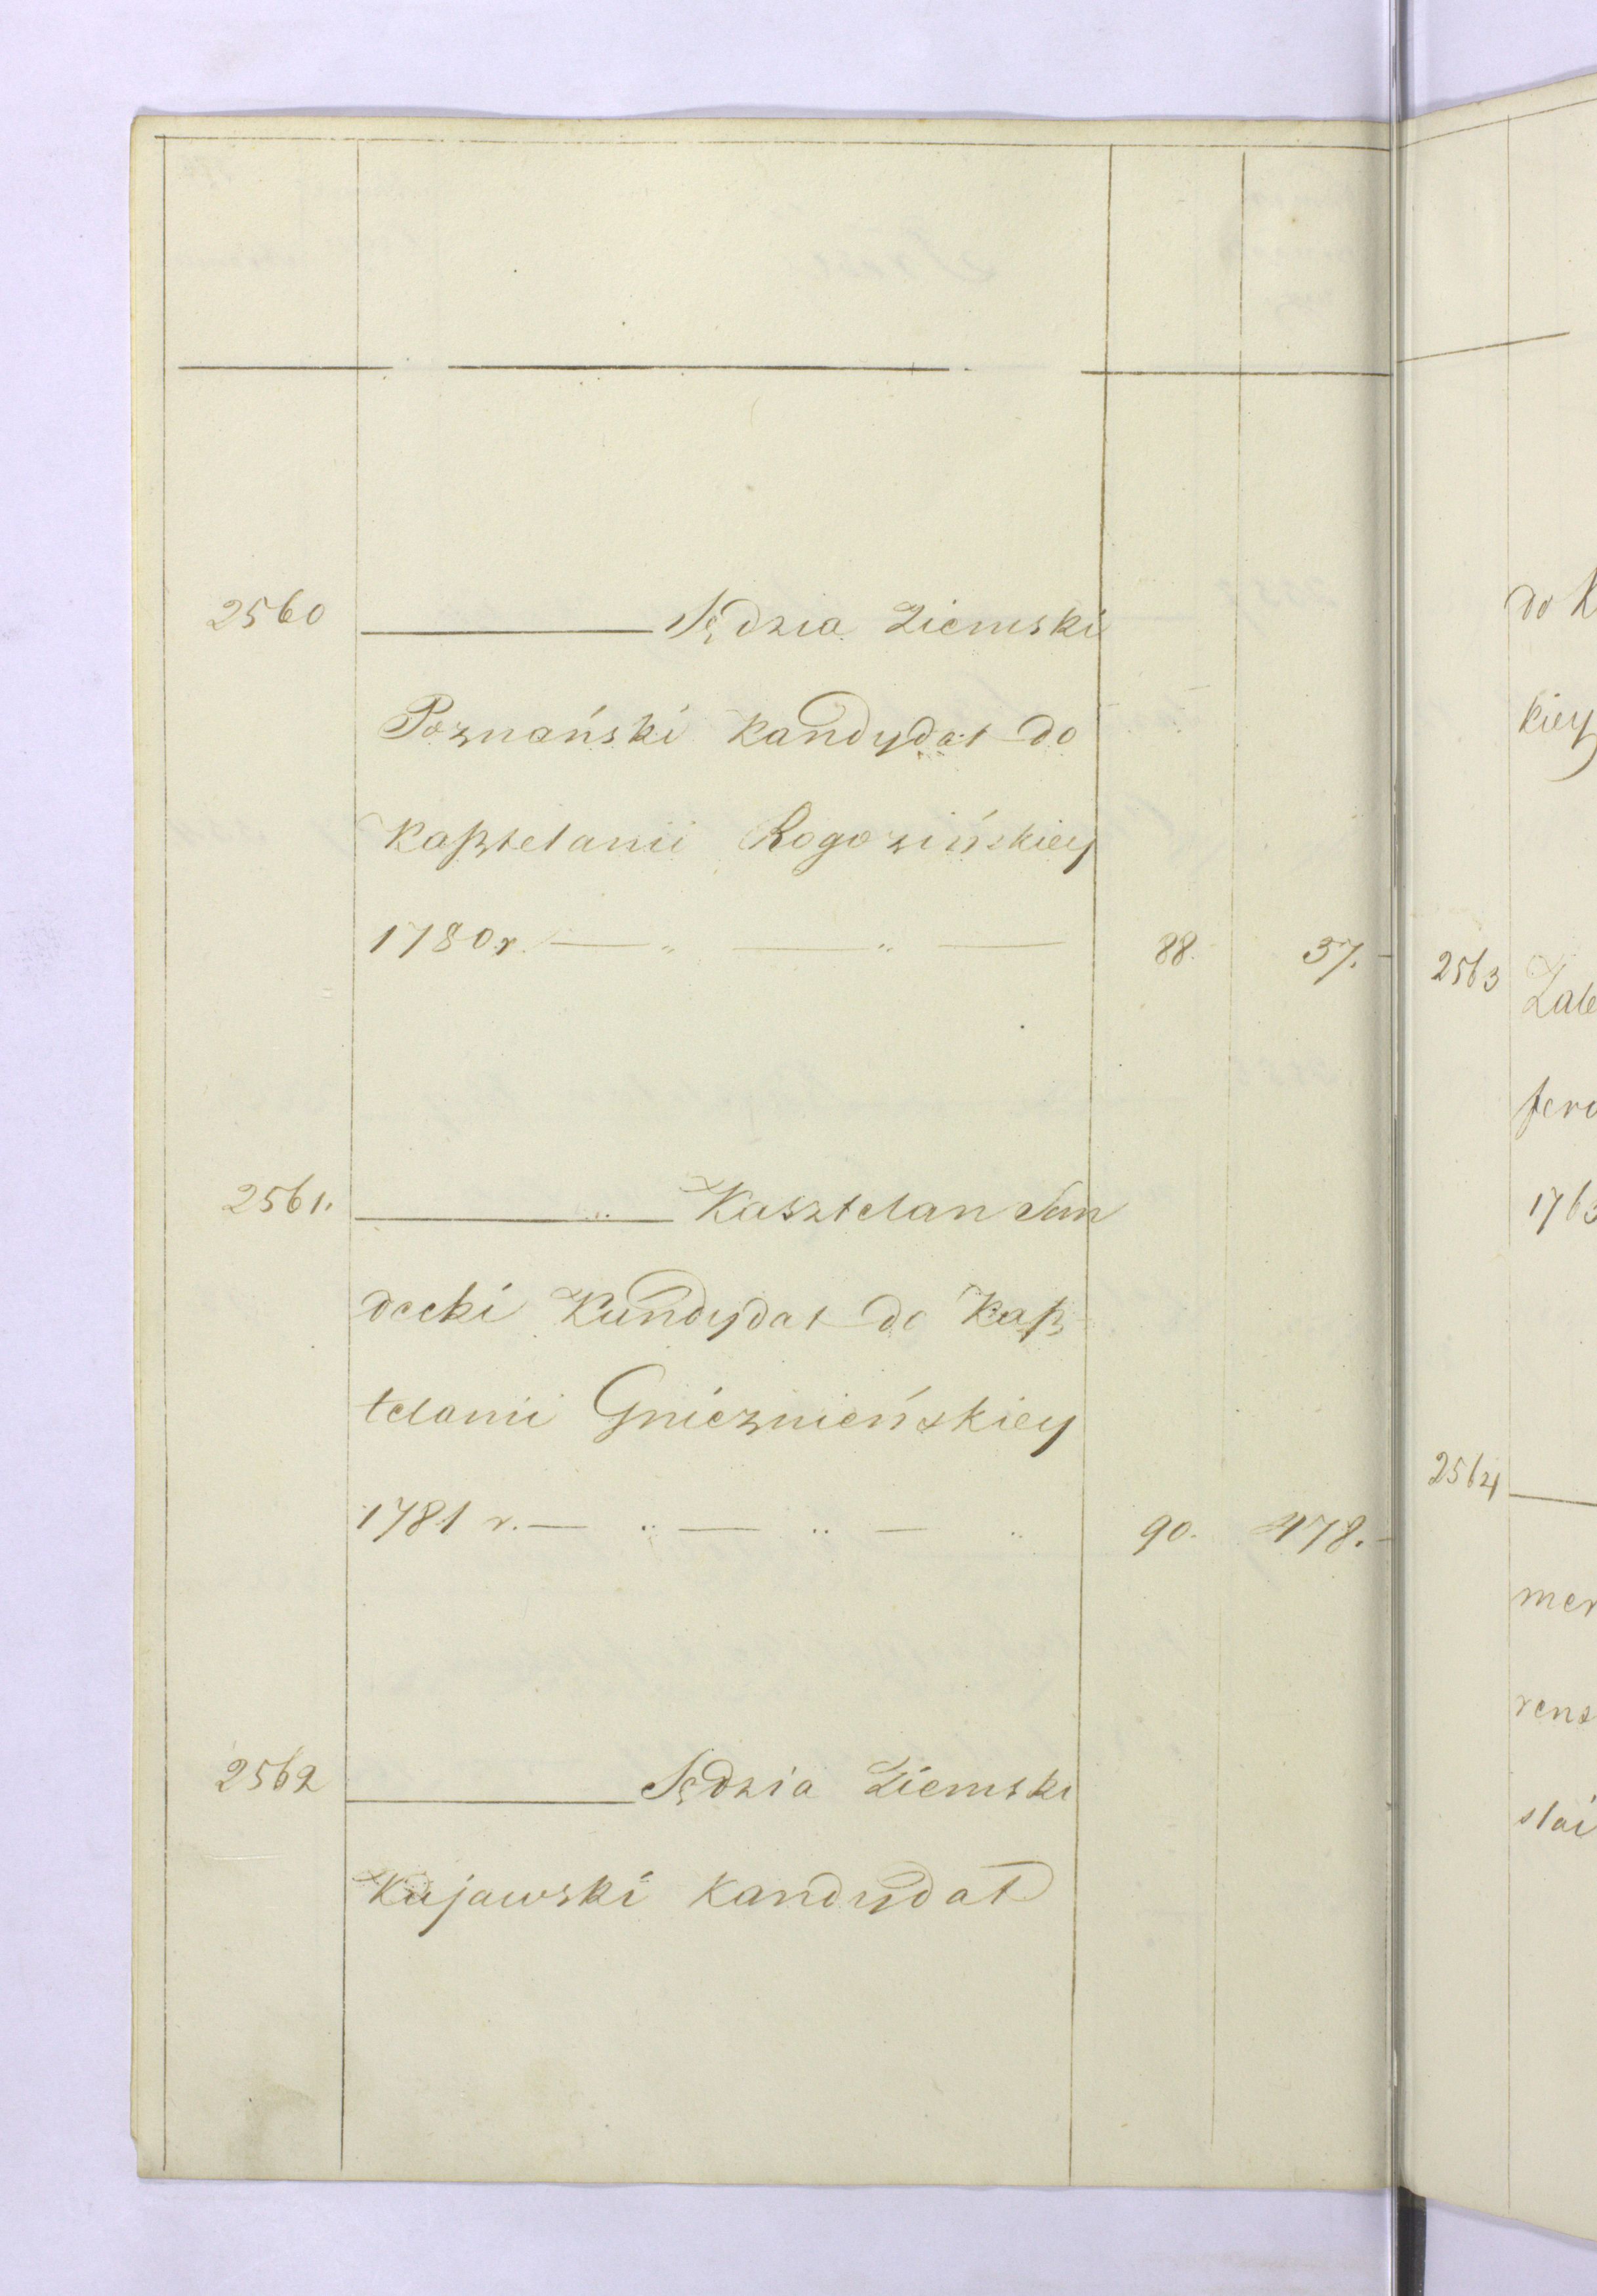 2560 ——— Sędzia Ziemski
Poznański kandydat do
kaßtelanii Rogozińskiey
1780 r. — „ — „ — 88. 37.
2561. ——— Kasztelan San
decki Kandydat do Kaß
telanii Gnieznieńskiey
1781 r. — „ — „ — „ 90. 478.
2562 ——— Sędzia Ziemski
Kujawski kandydat
do K
kiey
2563 Zale
fero
1763
2564 ———
mer
rens
stai